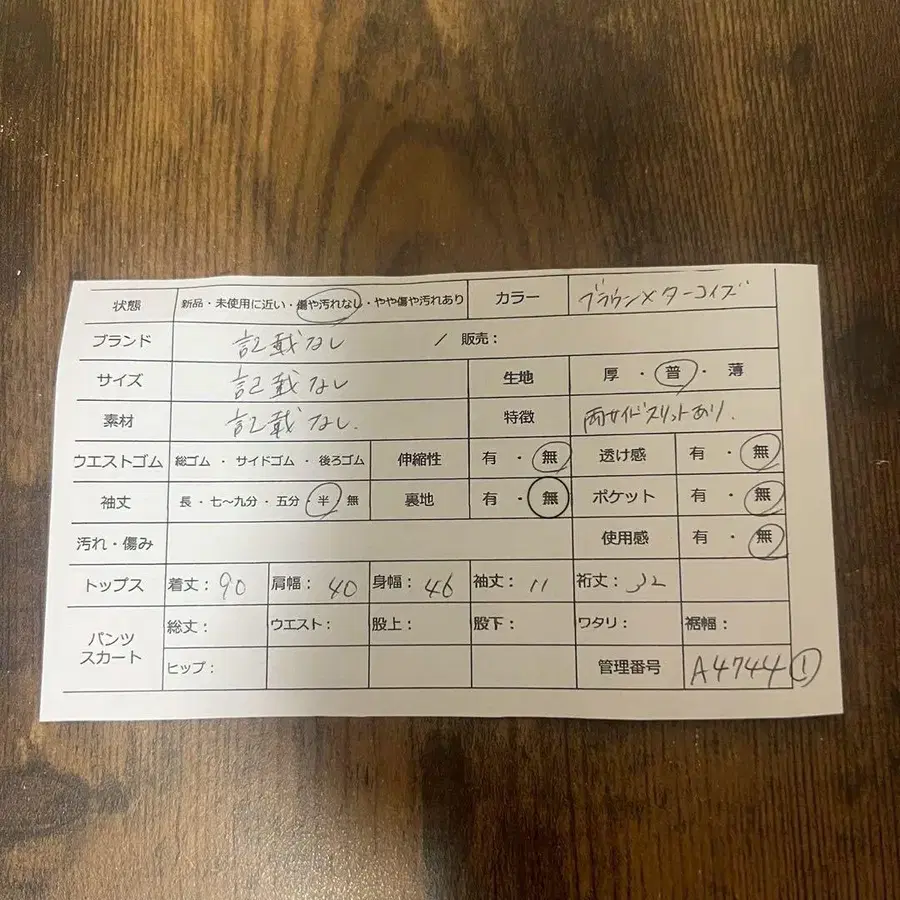 状態 新品・未使用に近い・傷や汚れなし・やや傷や汚れあり カラー ブラウン×ターコイズ
ブランド 記載なし / 販売：
サイズ 記載なし 生地 厚 ・ 普 ・ 薄
素材 記載なし. 特徴 両サイドスリットあり.
ウエストゴム 総ゴム ・ サイドゴム ・ 後ろゴム 伸縮性 有 ・ 無 透け感 有 ・ 無
袖丈 長 ・ 七〜九分 ・ 五分 ・ 半 ・ 無 裏地 有 ・ 無 ポケット 有 ・ 無
汚れ・傷み 使用感 有 ・ 無
トップス 着丈：90 肩幅：40 身幅：46 袖丈：11 裄丈：32
パンツ スカート 総丈： ウエスト： 股上： 股下： ワタリ： 裾幅：
ヒップ： 管理番号 A4744 ①